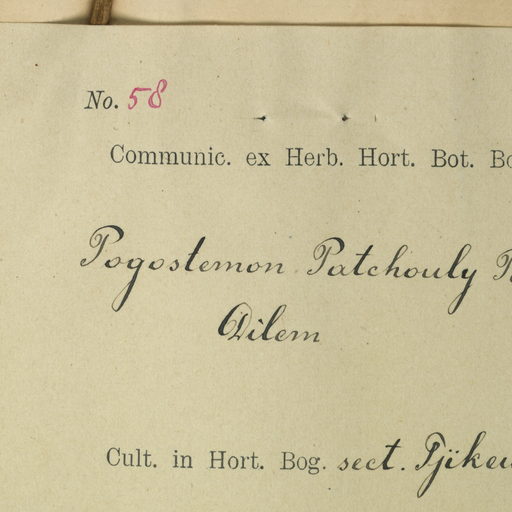 No. 58
Communic. ex Herb. Hort. Bot. Bo
Pogostemon Patchouly
Dilem
Cult. in Hort. Bog. sect. Tjikeu